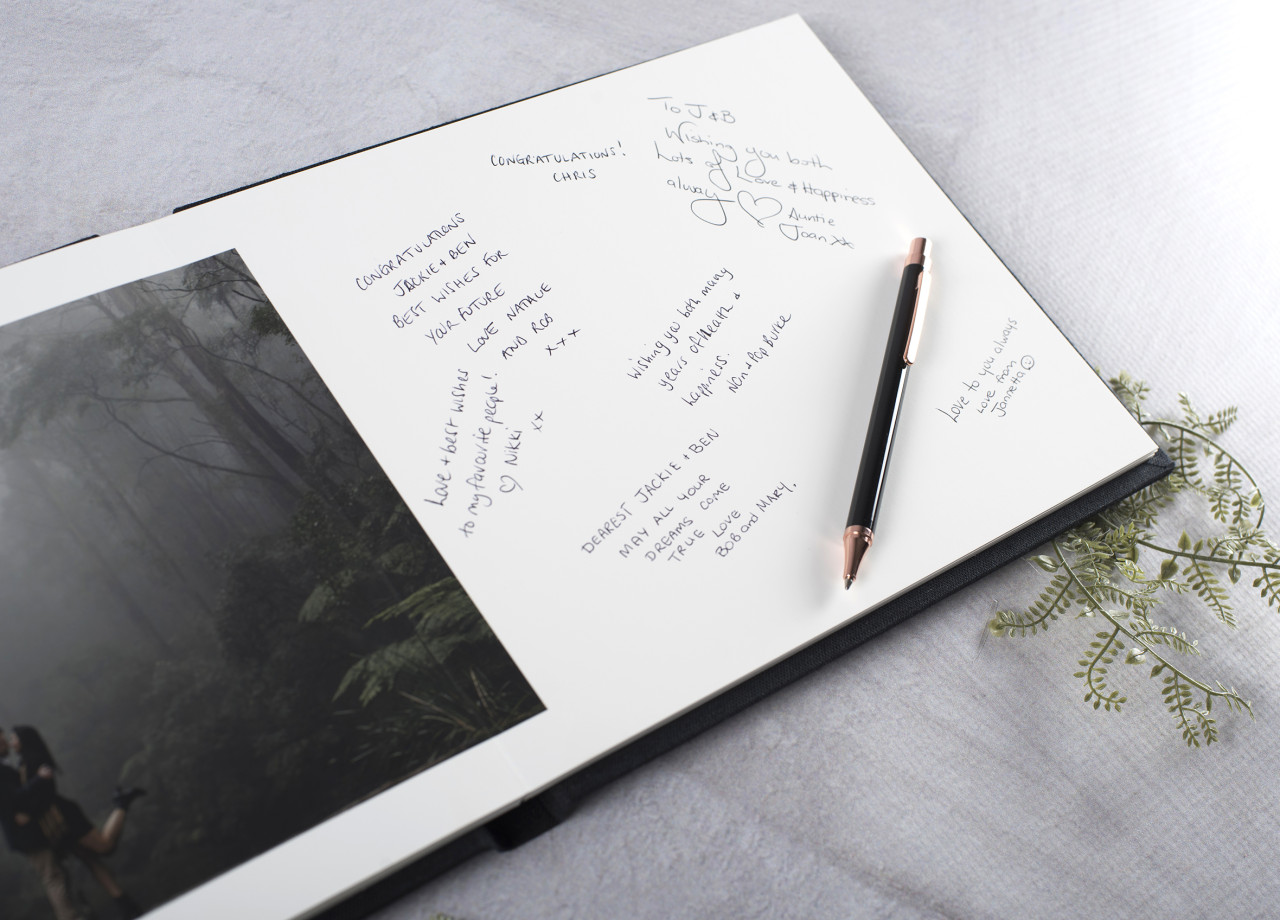 CONGRATULATIONS!
CHRIS
To J & B
Wishing you both
Lots of Love & Happiness
always
Auntie
Joan xx
CONGRATULATIONS
JACKIE + BEN
BEST WISHES FOR
YOUR FUTURE
LOVE NATALIE
AND ROB
x x x
Wishing you both many
years of Health &
happiness.
Non & Pop Burke
Love to you always
Love from
Jannetta
Love + best wishes
to my favourite people!
♡ Nikki
xx
DEAREST JACKIE + BEN
MAY ALL YOUR
DREAMS COME
TRUE LOVE
BOB and MARY.